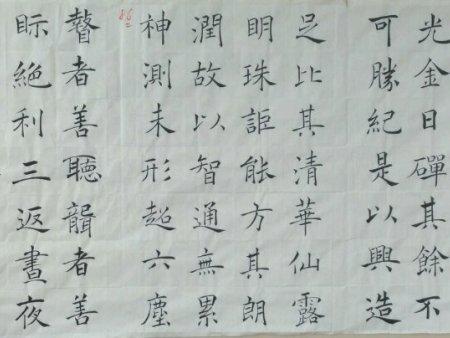 光金日磾其餘不
可勝紀是以興造
足比其清華仙露
明珠詎能方其朗
潤故以智通無累
神測未形超六塵
瞽者善聽聾者善
眎絕利三返晝夜